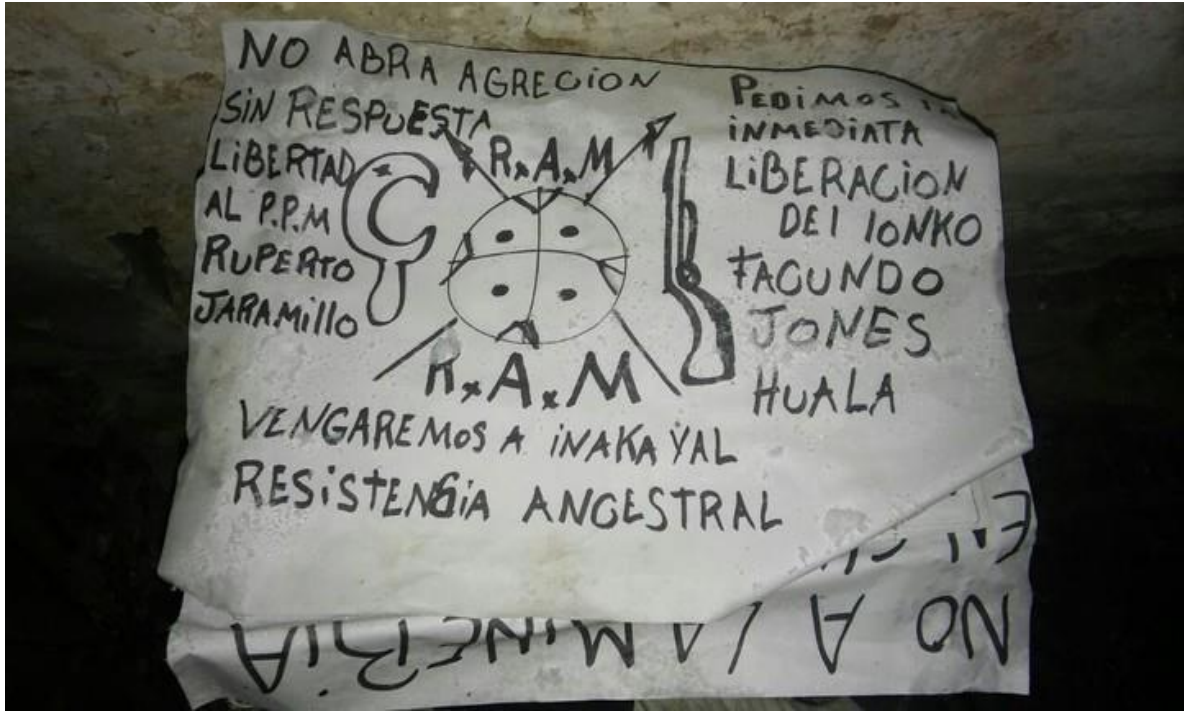 NO ABRA AGRECION
SIN RESPUESTA
LIBERTAD
AL P.P.M
RUPERTO
JARAMILLO
R.A.M
R.A.M
PEDIMOS
INMEDIATA
LIBERACION
DEL LONKO
FACUNDO
JONES
HUALA
VENGAREMOS A INAKAYAL
RESISTENSIA ANCESTRAL
NO A LA MINERIA